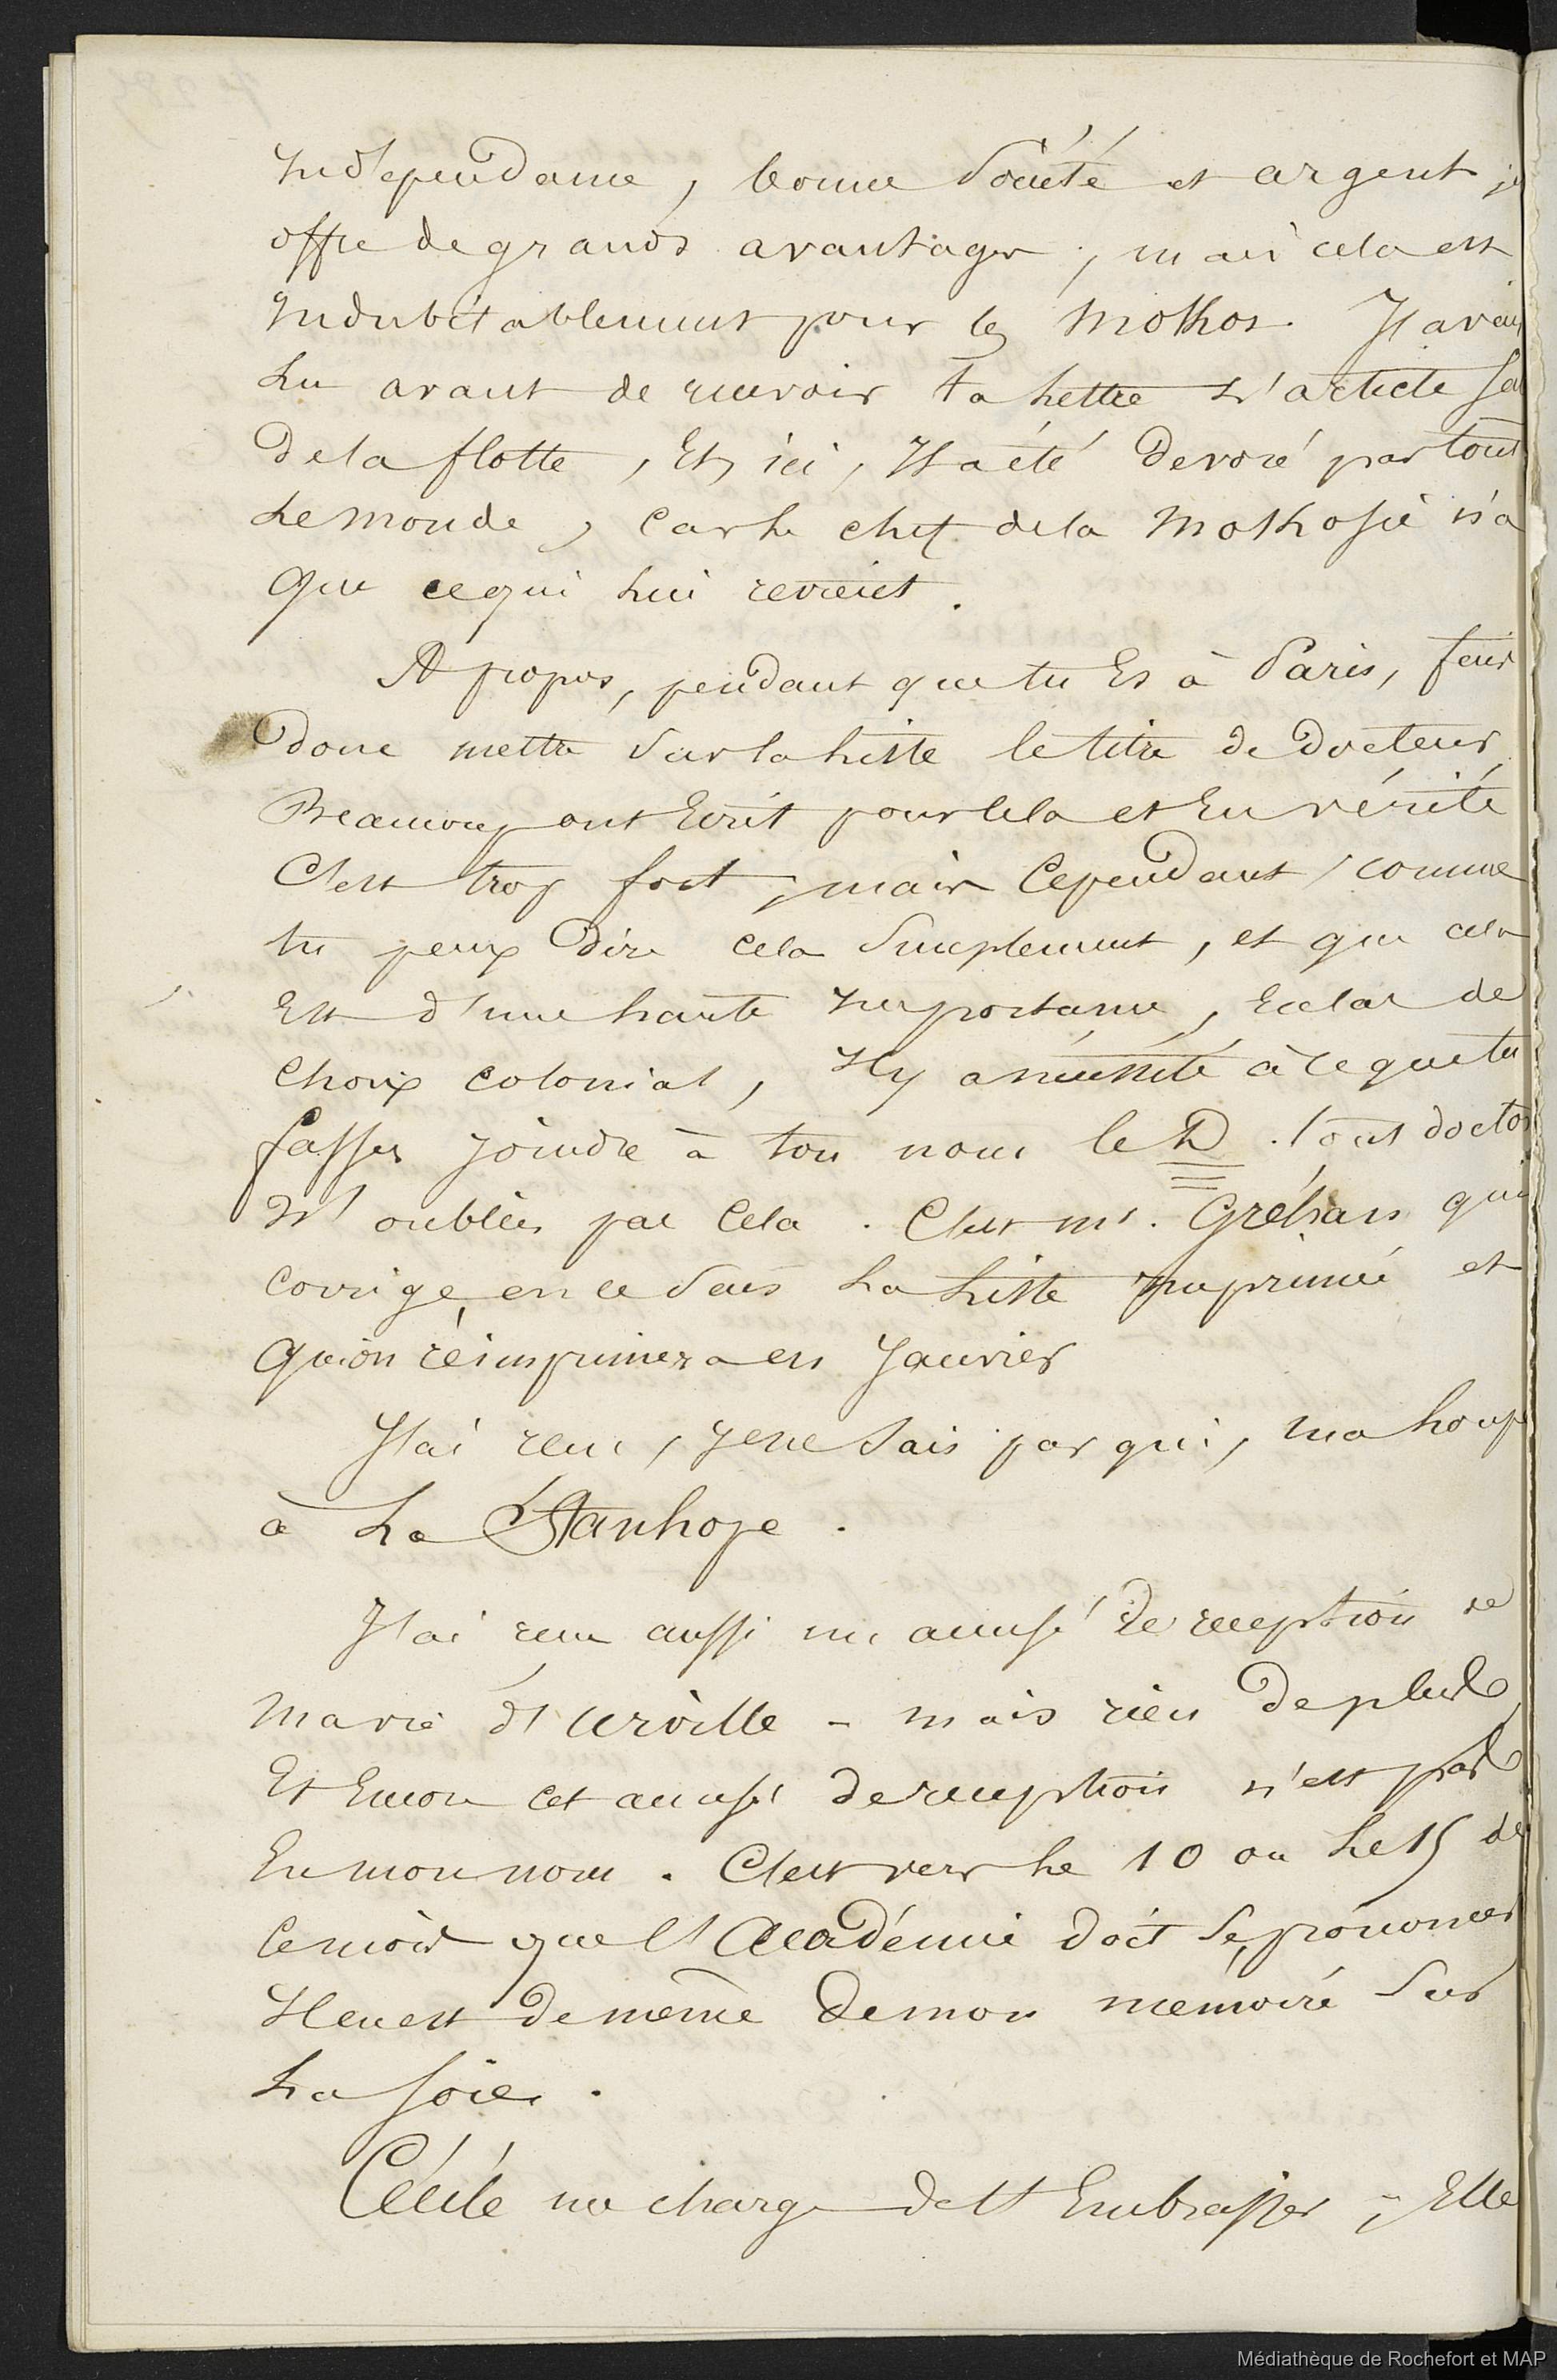 Independance, bonne Société et argent
offre de grands avantages ; mais cela est
Indubitablement pour les Mothos. J'avais
Lu avant de recevoir ta Lettre L'article
De la flotte, Et, ici, Il a été Devoré par tout
Le monde, Car le chef de la Mothosie n'a
Que ce qui Lui revient.
A propos, pendant que tu Es à Paris, fais
Donc mettre Sur la Liste le titre de Docteur,
Beaucoup ont Ecrit pour Cela et En vérité
C'est trop fort ; mais Cependant, comme
tu peux Dire Cela Simplement, et que cela
Est d'une haute Importance, de
Choix Colonial, Il y a nécessité à ce que tu
fasses joindre à ton nom le D.
N'oublies pas Cela. C'est mr. Gréhan qui
Corrige en ce Sens La Liste Imprimée et
Qu'on réimprimera en Janvier
J'ai reçu, Je ne Sais par qui, ma Loupe
à La Stanhope.
J'ai reçu aussi un accusé de reception de
Marie d'Urville - mais rien De plus
Et Encore Cet accusé De reception n'est pas
En mon nom. C'est vers Le 10 ou Le 15 de
Ce mois que l'Académie doit Se prononcer
Il en est De même De mon mémoire Sur
La Soie.
Cécile me charge de t'Embrasser ; Elle
Médiathèque de Rochefort et MAP